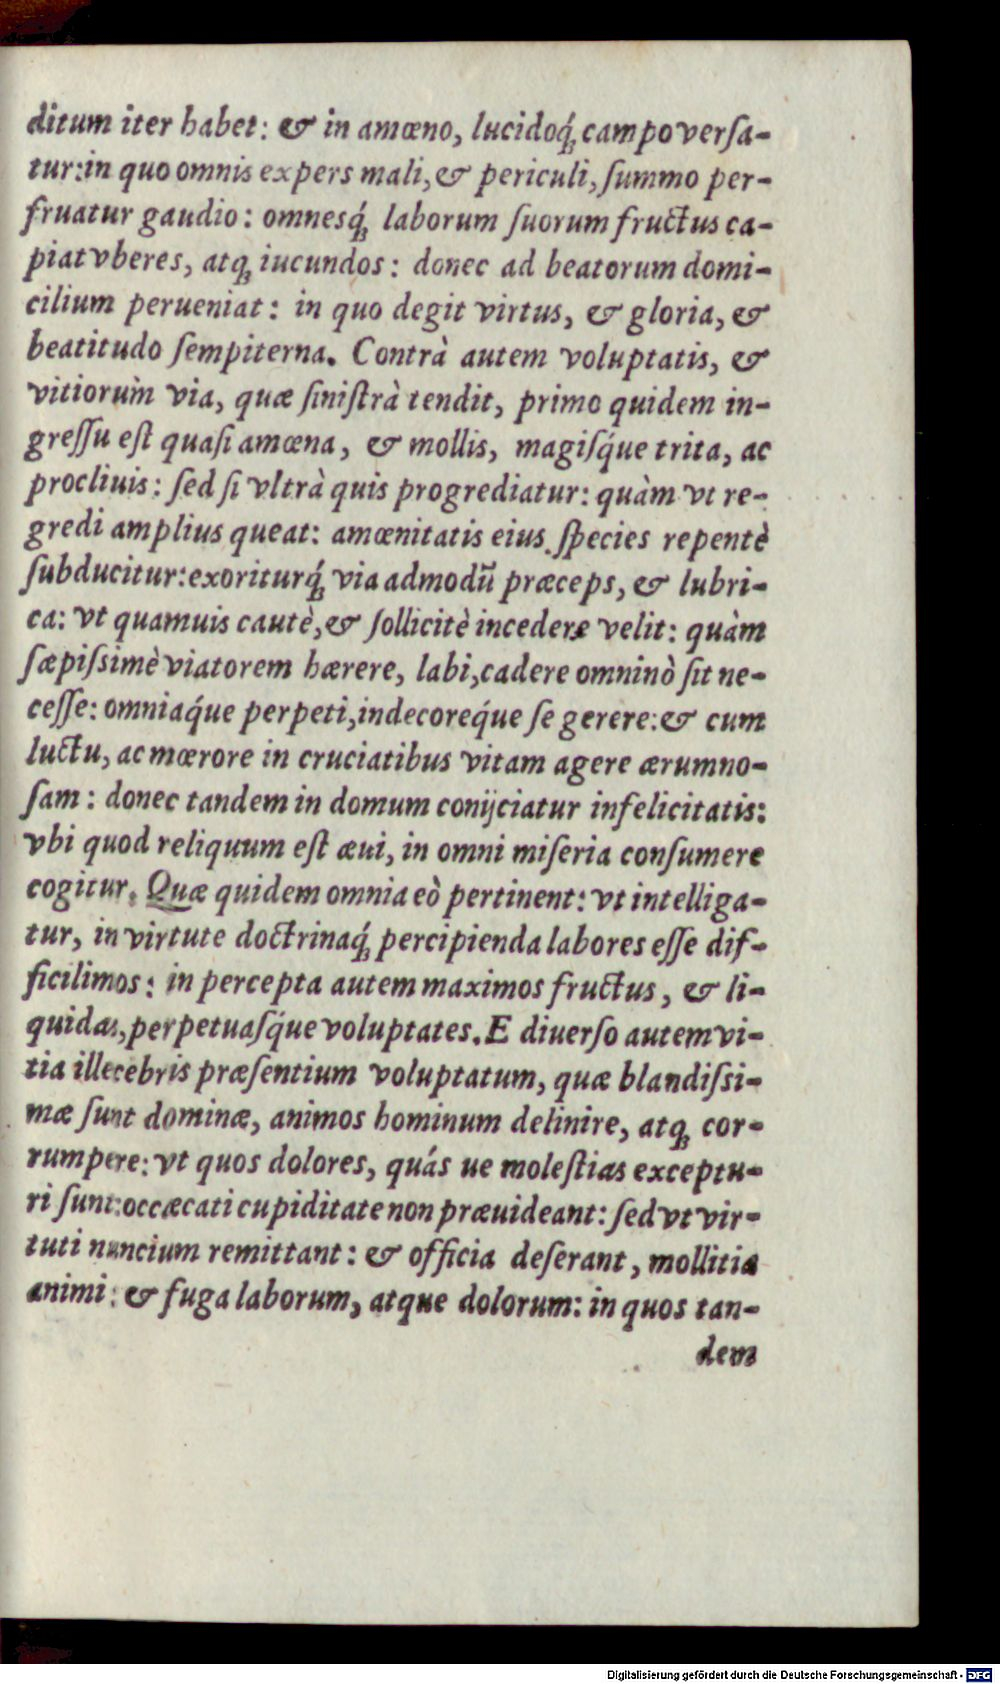 ditum iter habet: & in amœno, lucidoq́ꝫ campo verſa-
tur: in quo omnis expers mali, & periculi, ſummo per-
fruatur gaudio: omnesq́ꝫ laborum ſuorum fructus ca-
piat vberes, atqꝫ iucundos: donec ad beatorum domi-
cilium perueniat: in quo degit virtus, & gloria, &
beatitudo ſempiterna. Contrà autem voluptatis, &
vitiorum via, quæ ſiniſtrà tendit, primo quidem in-
greſſu eſt quaſi amœna, & mollis, magiſq́ue trita, ac
procliuis: ſed ſi vltrà quis progrediatur: quàm vt re-
gredi amplius queat: amœnitatis eius ſpecies repentè
ſubducitur: exoriturq́ꝫ via admodũ præceps, & lubri-
ca: vt quamuis cautè, & ſollicitè incedere velit: quàm
ſæpiſsimè viatorem hærere, labi, cadere omninò ſit ne-
ceſſe: omniaq́ue perpeti, indecoreq́ue ſe gerere: & cum
luctu, ac mœrore in cruciatibus vitam agere ærumno-
ſam: donec tandem in domum conijciatur infelicitatis:
vbi quod reliquum eſt æui, in omni miſeria conſumere
cogitur. Quæ quidem omnia eò pertinent: vt intelliga-
tur, in virtute doctrinaq́ꝫ percipienda labores eſſe dif-
ficilimos: in percepta autem maximos fructus, & li-
quidas, perpetuaſq́ue voluptates. E diuerſo autem vi-
tia illecebris præſentium voluptatum, quæ blandiſsi-
mæ ſunt dominæ, animos hominum delinire, atqꝫ cor-
rumpere: vt quos dolores, quás ue moleſtias exceptu-
ri ſunt: occæcati cupiditate non præuideant: ſed vt vir-
tuti nuncium remittant: & officia deſerant, mollitia
animi: & fuga laborum, atque dolorum: in quos tan-
dem
Digitalisierung gefördert durch die Deutsche Forschungsgemeinschaft - DFG